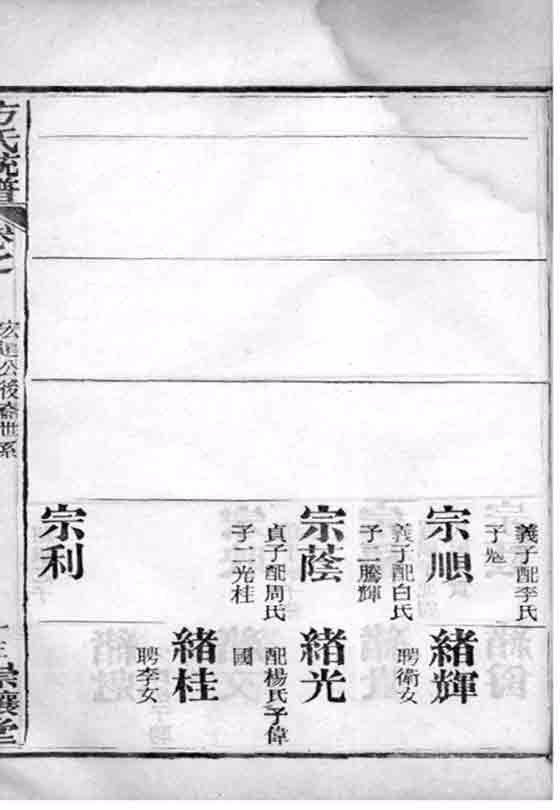 義子配李氏
子魁
宗順
義子配白氏
子二騰輝
宗蔭
貞子配周氏
子二光桂
宗利
緒輝
聘衛女
緒光
配楊氏子偉
國
緒桂
聘李女
方氏統譜
卷七
公後裔世系
崇讓堂